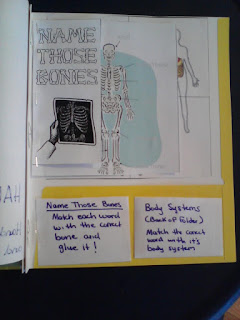 NAME
THOSE
BONES
Name Those Bones
Match each word
with the correct
bone and
glue it!
Body Systems
(Back of Folder)
Match the correct
word with it's
body system